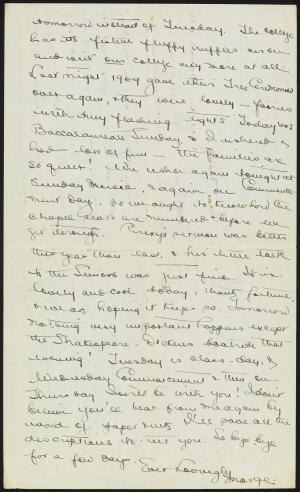 tomorrow instead of Tuesday. The college
has its frilly fluffy ruffles air on
and isn't our college any more at all.
Last night 1909 gave their Tree Ceremonies
over again, & they were lovely – fairies
with tiny flashing lights. Today was
Baccalaureate Sunday & I ushered &
had lots of fun – the families are
so quiet! We usher again tonight at
Sunday Music, & again on Commence-
ment Day, so we ought to know how the
chapel seats are numbered before we
get through. Prexy's sermon was better
this year than last, & his little talk
to the Seniors was just fine. It is
lovely and cool today, thank fortune,
& we are hoping it keeps so. Tomorrow
nothing very important happens except
the Shakespeare – Dickens boatride that
evening! Tuesday is class-day, &
Wednesday Commencement & then on
Thursday I will be with you! I don't
believe you'll hear from me again by
word of paper but I'll save all the
descriptions till I see you. So bye bye
for a few days.
Ever lovingly
Marge.